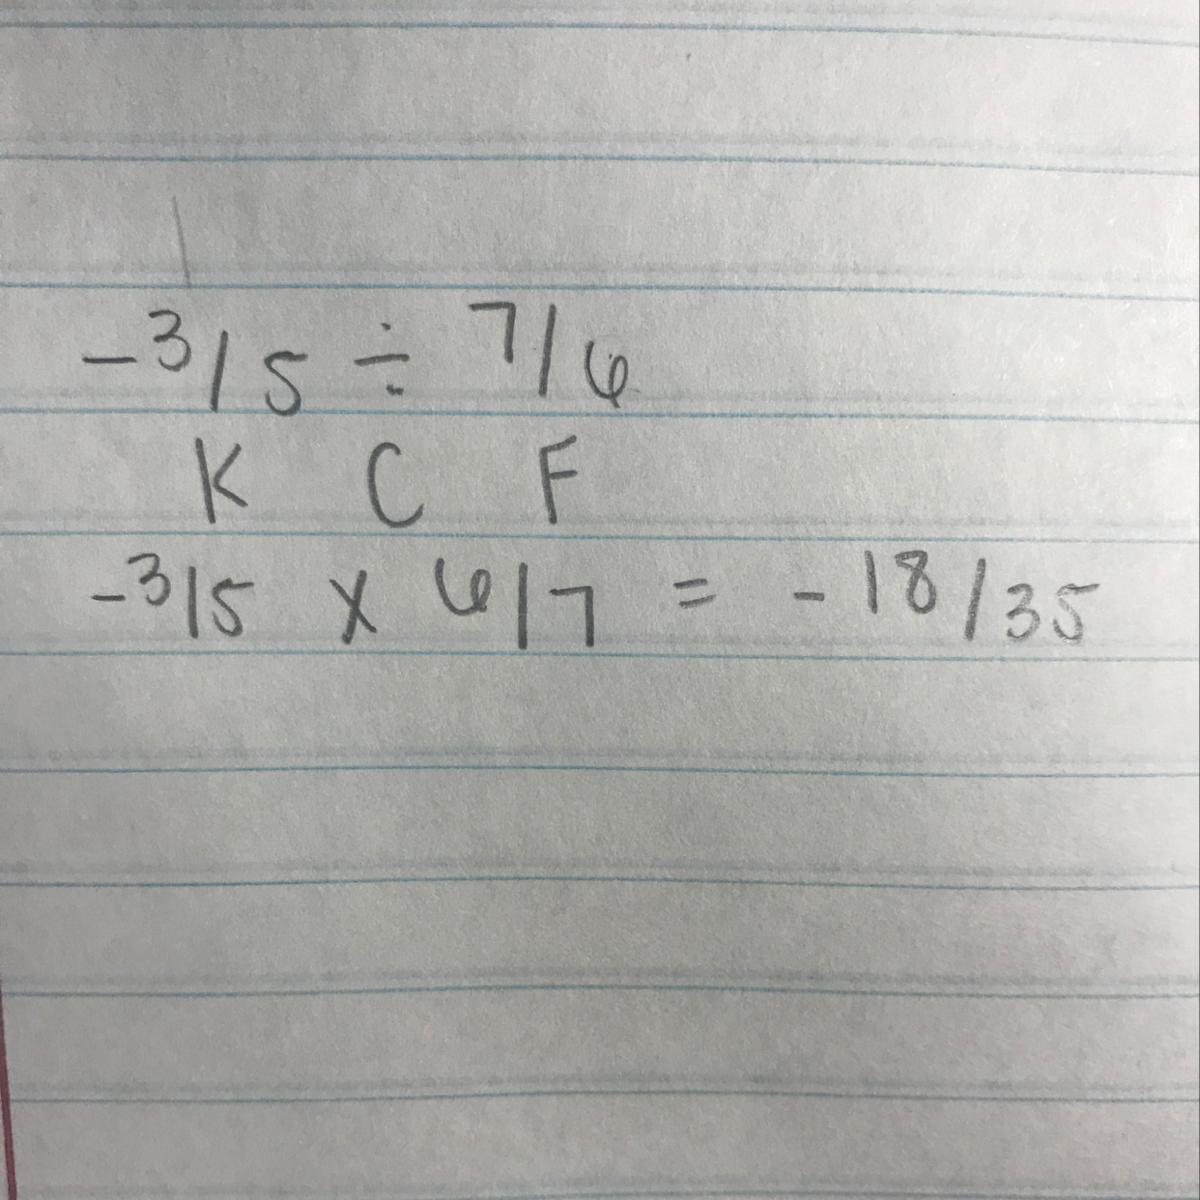 -3/5 ÷ 7/6
K C F
-3/5 x 6/7 = -18/35